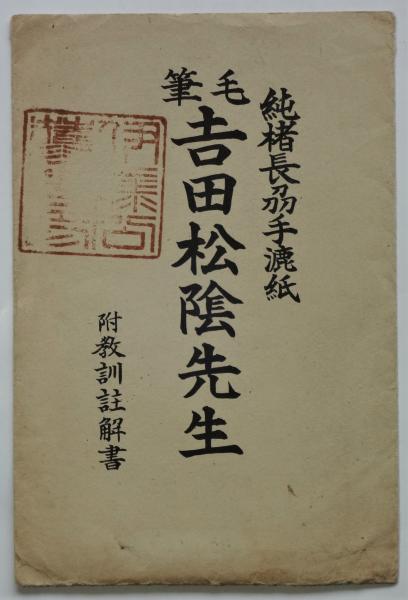 純楮長刕手漉紙
毛筆
𠮷田松陰先生
附教訓註解書